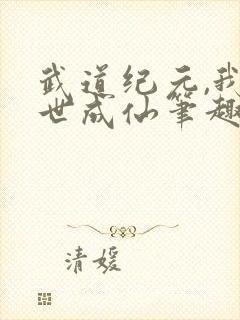 武道纪元,我
世成仙笔趣
清媛